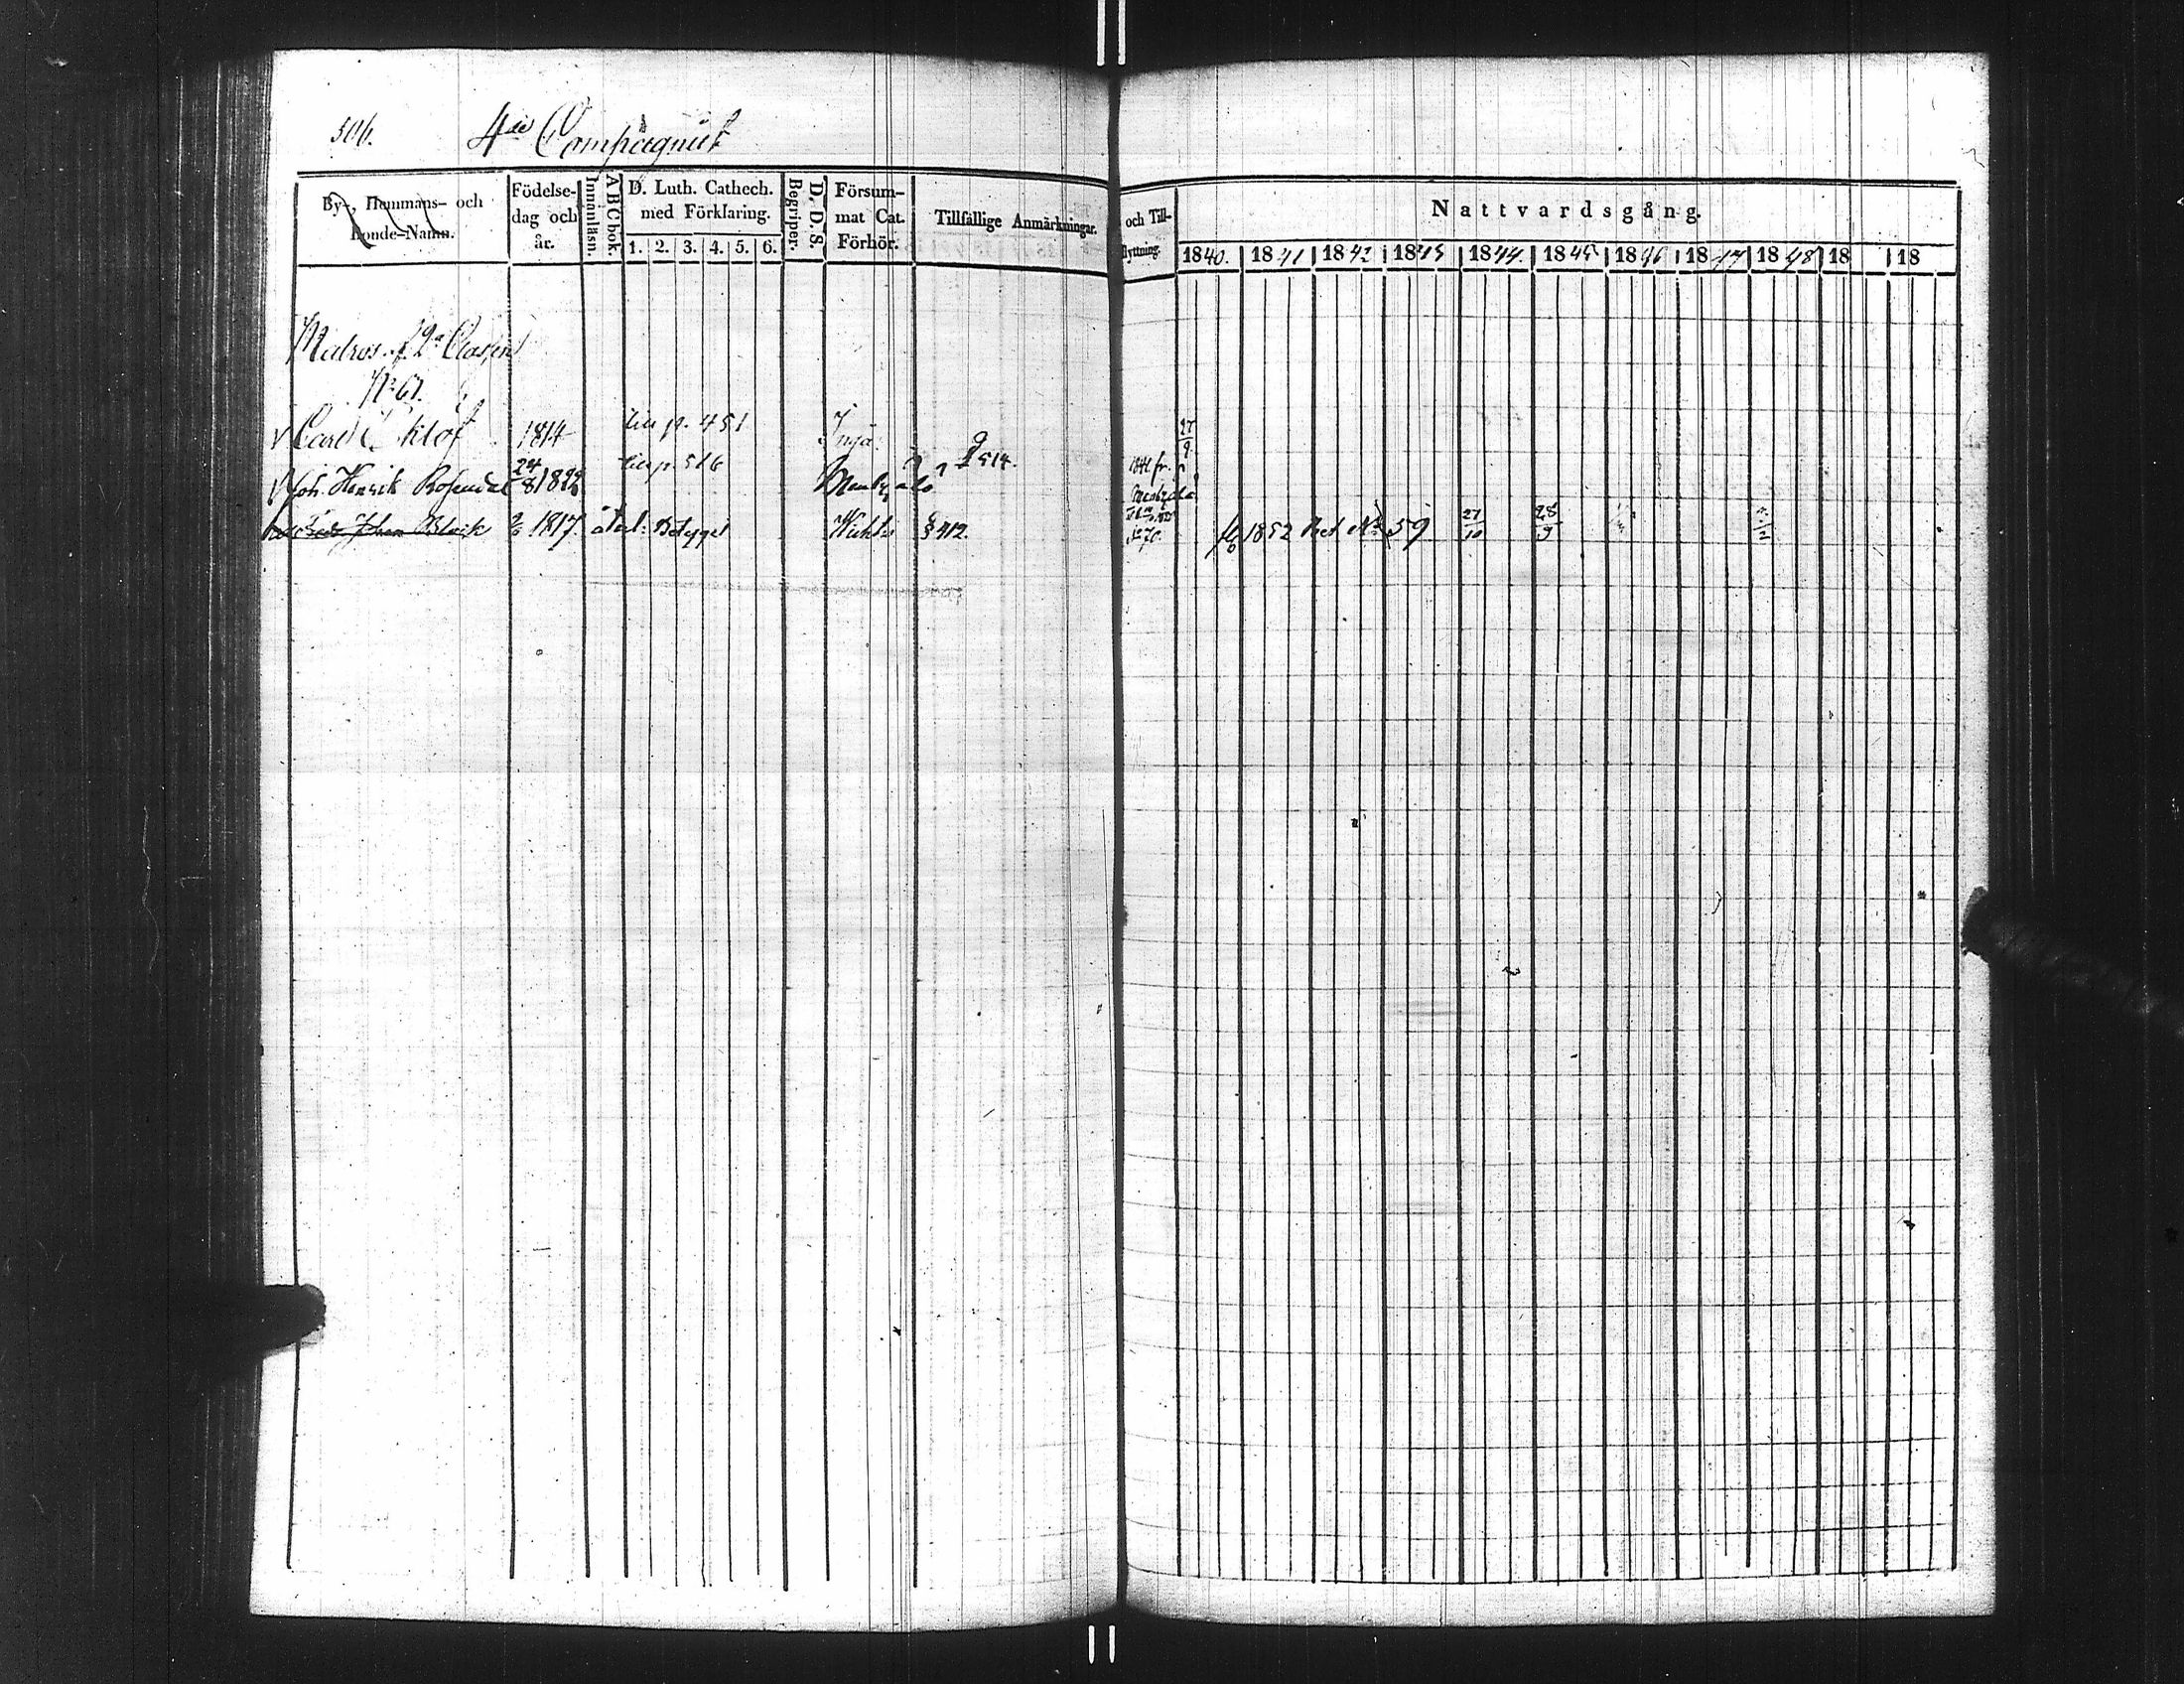 506.
4de Compagniet
By-, Hemmans- och
Bonde-Namn.
Födelse-
dag och
år.
Innanläsn.
ABCbok.
D. Luth. Cathech.
med Förklaring.
1. 2. 3. 4. 5. 6.
Begriper.
D. D. S.
Försum-
mat Cat.
Förhör.
Tillfällige Anmärkningar.
och Till-
flyttning.
Nattvardsgång.
1840. 1841 1842 1843 1844. 1845 1846 1847 1848 18 18
Matros af 2a Classen
No 67.
Carl Eklöf 1814 till p. 451 Ingå 27/9
Joh. Henrik Rosendal 24/8 1822 till p. 516 § 514. 1842 fr.
Johan Bleik 1817. Betyget § 412. 1852 Bet No 59 27/10 28/9